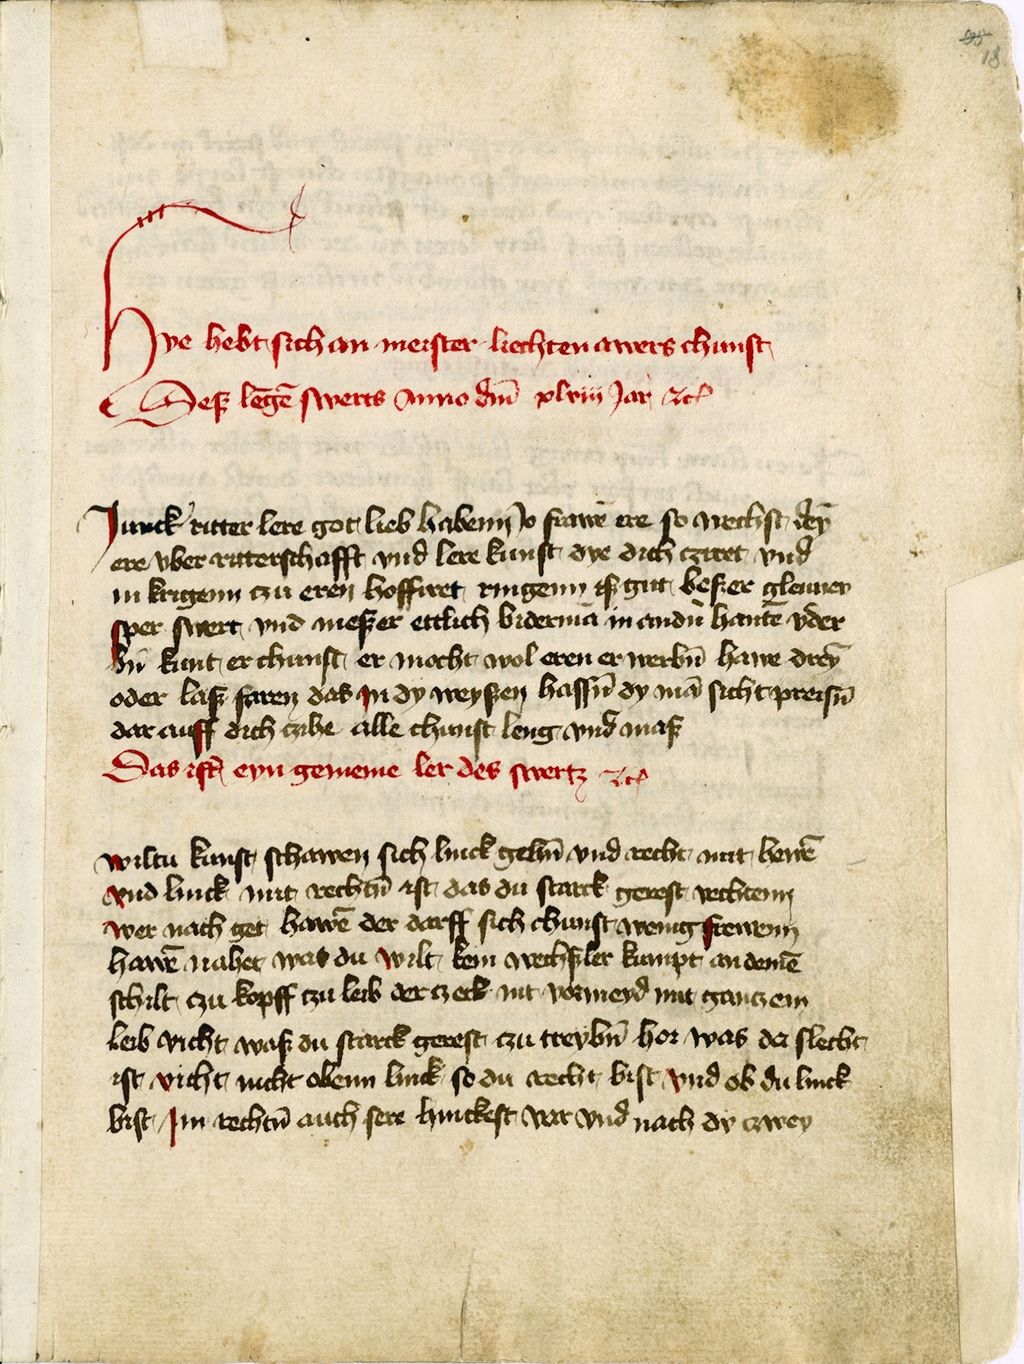 18
Hye hebt sich an meister liechtenawers chunst
Desß lengē swerts Anno dm̄ xlviij Jar etc
Junck ritter lere got lieb habenn Jo frawē ere so wechst dey̅
ere vber ritterschafft vnd lere kunst dye dich cziret vnd
in krigenn czu eren hoffiret ringenn iß gut beßer glenney
sper swert vnd meßer ettlich biderma̅ in andn̄ hantē vder
bn̄ kunt er chunst er mocht wol eren er werbn̄ hawe drey̅
oder laß faren das Jn dy weyßen hassn̄ dy ma̅ sicht preisn̄
dar auff dich czihe alle chunst leng vnd maß
Das ist eyn gemeine ler des swertz etc
wiltu kunst schawen sich linck gehn̄ vnd recht mit hewē
vnd linck mit rechtn̄ ist das du starck gerest vechtenn
wer nach get hawē der darff sich chunst wenig frewenn
hawē nahet was du wilt kein wechsler kumpt an demē
schilt czu kopff czu leib der czeck nit vormeyd mit ganczem
leib vicht waß du starck gerest czu treybn̄ hor was da slecht
ist vicht nicht obenn linck so du recht bist vnd ob du linck
bist Jm rechtn̄ auch sere hinckest vor vnd nach dy czwey